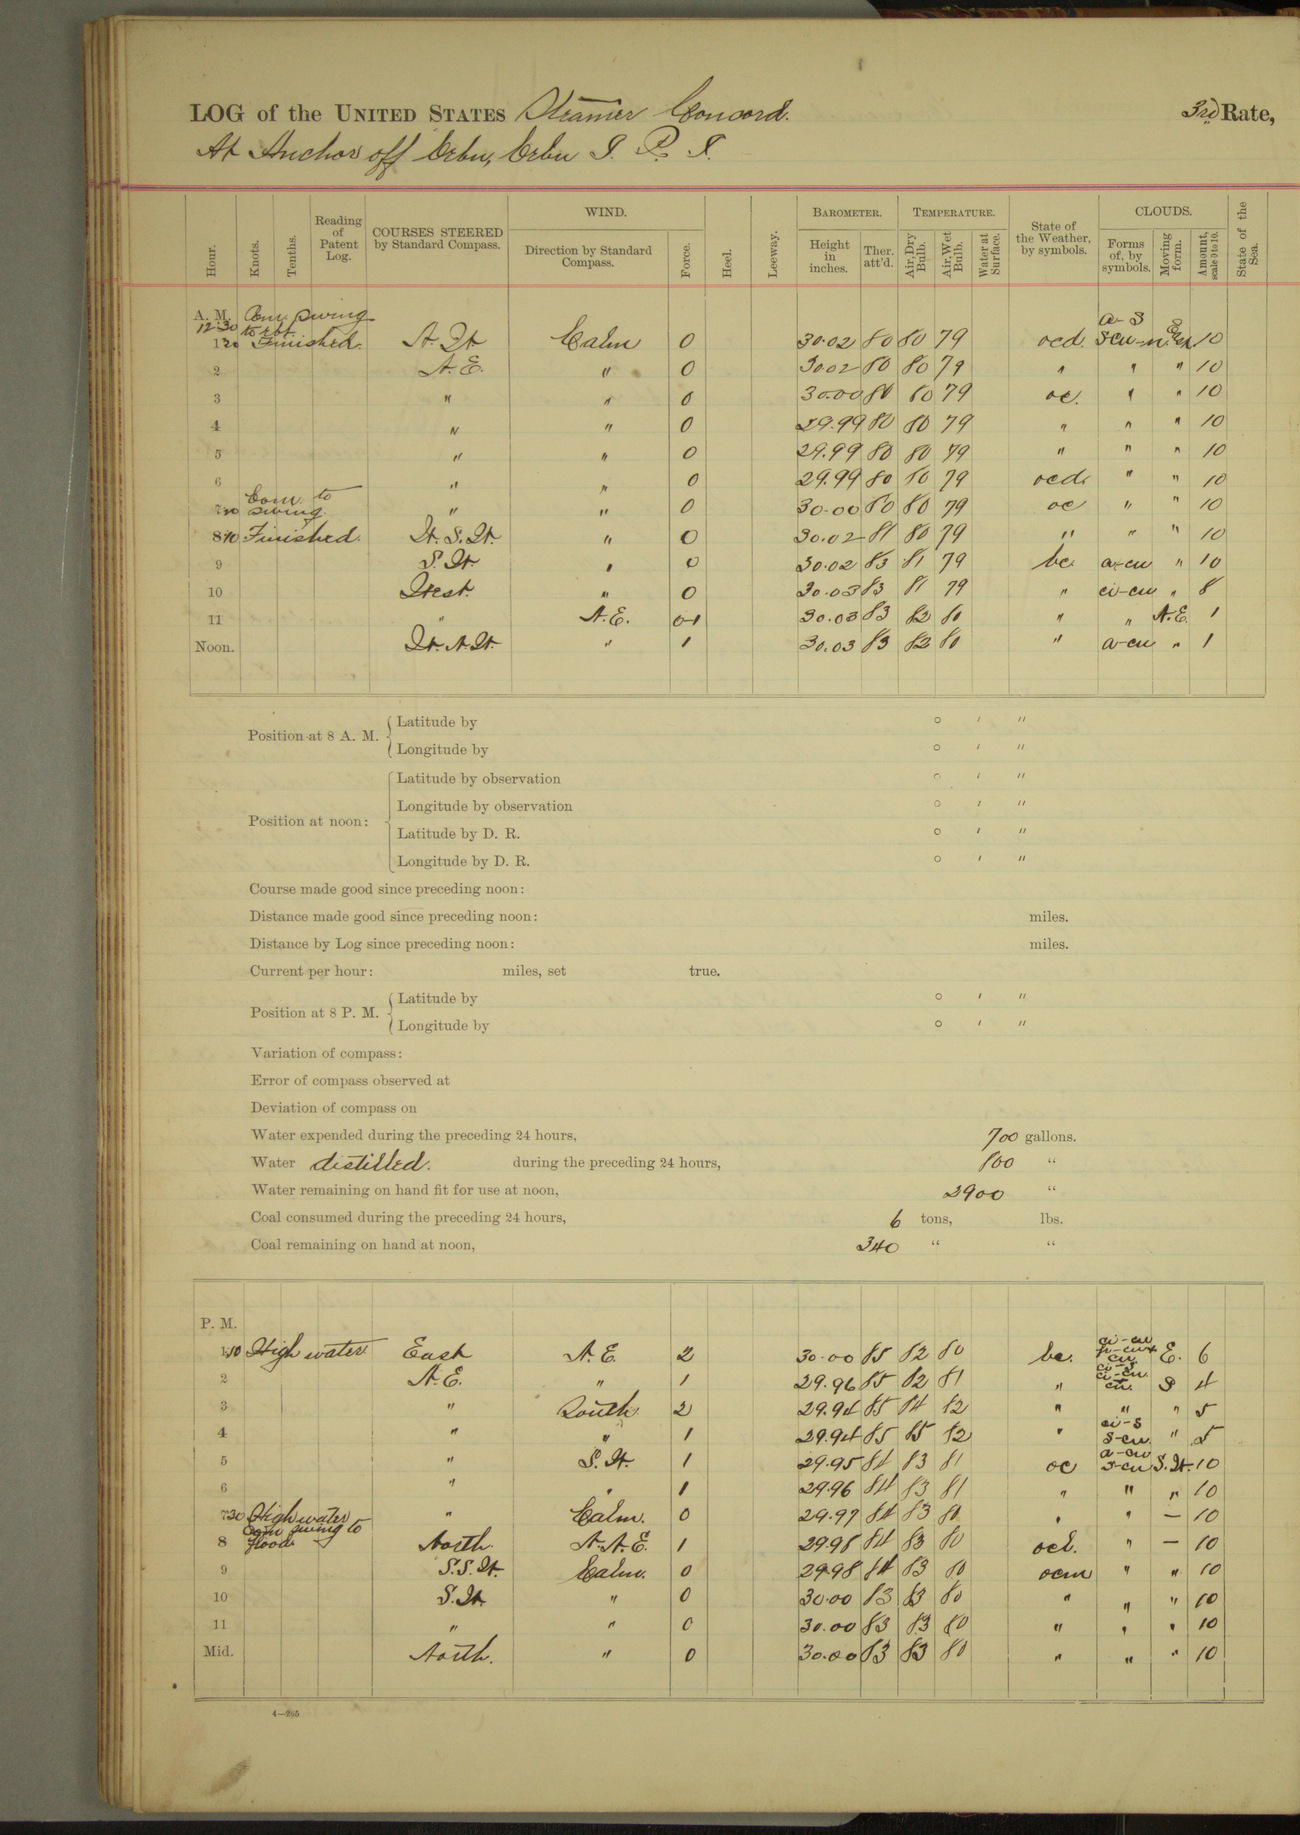 LOG of the UNITED STATES Steamer Concord. 3rd Rate,
At Anchor off Cebu, Cebu I. P. I.
Hour. Knots. Tenths. Reading of Patent Log. COURSES STEERED by Standard Compass. WIND. Direction by Standard Compass. Force. Heel. Leeway. BAROMETER. Height in inches. Ther. att'd. TEMPERATURE. Air, Dry Bulb. Air, Wet Bulb. Water at Surface. State of the Weather, by symbols. CLOUDS. Forms of, by symbols. Moving form. Amount, scale 0 to 10. State of the Sea.
A. M. Com. swing a-s
12.30 to ebb
1 20 Finished. N.W Calm 0 30.02 80 80 79 ocd. s cu-n. 10
2 N.E. " 0 30.02 80 80 79 " " " 10
3 " " 0 30.00 80 80 79 oc. " " 10
4 " " 0 29.99 80 80 79 " " " 10
5 " " 0 29.99 80 80 79 " " " 10
6 " " 0 29.99 80 80 79 ocd. " " 10
Com. to
7 10 swing. " " 0 30.00 80 80 79 oc " " 10
8 40 Finished. W.S.W. " 0 30.02 81 80 79 " " " 10
9 S.W. " 0 30.02 83 81 79 bc. a-cu " 10
10 West. " 0 30.03 83 81 79 " ci-cu " 8
11 " N.E. 0-1 30.03 83 82 80 " " N.E. 1
Noon. W.N.W. " 1 30.03 83 82 80 " a-cu " 1
Position at 8 A. M. Latitude by ° ' "
Longitude by ° ' "
Position at noon: Latitude by observation ° ' "
Longitude by observation ° ' "
Latitude by D. R. ° ' "
Longitude by D. R. ° ' "
Course made good since preceding noon:
Distance made good since preceding noon: miles.
Distance by Log since preceding noon: miles.
Current per hour: miles, set true.
Position at 8 P. M. Latitude by ° ' "
Longitude by ° ' "
Variation of compass:
Error of compass observed at
Deviation of compass on
Water expended during the preceding 24 hours, 700 gallons.
Water distilled. during the preceding 24 hours, 800 "
Water remaining on hand fit for use at noon, 2900 "
Coal consumed during the preceding 24 hours, 6 tons, lbs.
Coal remaining on hand at noon, 340 " "
P. M.
1 10 High water East N.E. 2 30.00 85 82 80 bc. ci-cu cu E. 6
2 N.E. " 1 29.96 85 82 81 " ci-s ci-cu. cu. S 4
3 " South 2 29.94 85 84 82 " " " 5
4 " " 1 29.94 85 85 82 " ci-s s-cu. " 5
5 " S.W. 1 29.95 84 83 81 oc a-cu s-cu S.W. 10
6 " " 1 29.96 84 83 81 " " " 10
7 30 High water " Calm. 0 29.97 84 83 80 " " — 10
Com swing to
8 flood. North. N.N.E. 1 29.98 84 83 80 ocl. " — 10
9 S.S.W. Calm. 0 29.98 84 83 80 ocm " " 10
10 S.W. " 0 30.00 83 83 80 " " " 10
11 " " 0 30.00 83 83 80 " " " 10
Mid. North. " 0 30.00 83 83 80 " " " 10
4—265